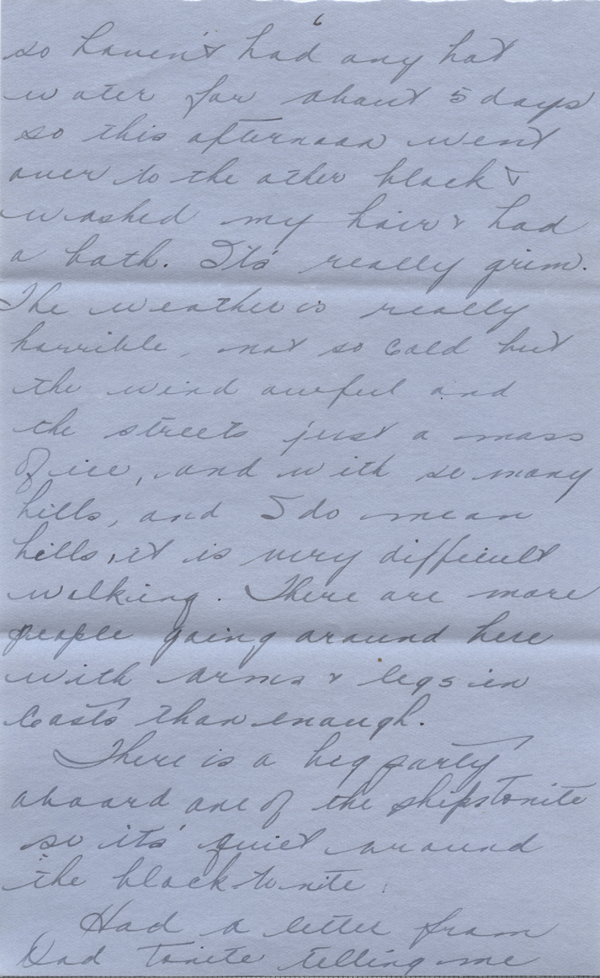 6
so haven't had any hot
water for about 5 days
so this afternoon went
over to the other block &
washed my hair & had
a bath. It's really grim.
The weather is really
horrible, not so cold but
the wind awful and
the streets just a mass
of ice, and with so many
hills, and I do mean
hills, it is very difficult
walking. There are more
people going around here
with arms & legs in
casts than enough.
There is a big party
aboard one of the ships tonite
so it's quiet around
the block tonite.
Had a letter from
Dad tonite telling me